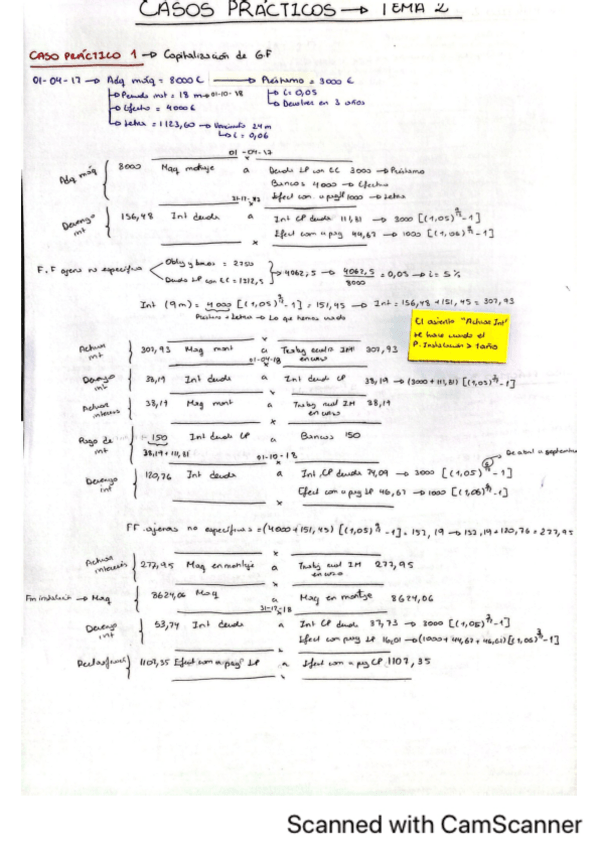 CASOS PRÁCTICOS → TEMA 2
CASO PRÁCTICO 1 → Capitalización de G.F
01-04-17 → Adq máq = 8000 € → Préstamo = 3000 €
→ Periodo mnt = 18 m → 01-10-18 → i = 0,05
→ Efectivo = 4000 € → Devolver en 3 años
→ Letras = 1123,60 → Vencimiento 24 m
→ i = 0,06
01-04-17
Adq máq 8000 Maq montaje a Deuda LP con EC 3000 → Préstamo
Bancos 4000 → Efectivo
Efect con. a pag LP 1000 → Letras
31-12-17
Devengo int 156,48 Int deuda a Int CP deuda 111,81 → 3000 [(1,05)^9/12 - 1]
Efect com a pag 44,67 → 1000 [(1,06)^9/12 - 1]
F.F ajena no específica Oblig y bonos = 2750
Deuda LP con EC = 1312,5 → 4062,5 → 4062,5 / 8000 = 0,05 → i = 5%
Int (9m) = 4000 [(1,05)^9/12 - 1] = 151,45 → Int = 156,48 + 151,45 = 307,93
Préstamo + Letra → Lo que hemos usado
El asiento "Activar Int"
se hace cuando el
P. Instalación > 1 año
Activar int 307,93 Maq mont a Trabj realiz IM en curso 307,93
01-04-18
Devengo int 38,19 Int deuda a Int deud CP 38,19 → (3000 + 111,81) [(1,05)^3/12 - 1]
Activar intereses 38,19 Maq mont a Trabj real IM en curso 38,19
Pago de int 150 Int deuda CP a Bancos 150
38,19 + 111,81
01-10-18
De abril a septiembre
Devengo int 120,76 Int deuda a Int CP deuda 74,09 → 3000 [(1,05)^6/12 - 1]
Efect com a pag LP 46,67 → 1000 [(1,06)^9/12 - 1]
FF ajenas no específicas = (4000 + 151,45) [(1,05)^9/12 - 1] = 157,19 → 157,19 + 120,76 = 277,95
Activar intereses 277,95 Maq en montaje a Trabj real IM en curso 277,95
Fin instalación → Maq 8624,06 Maq a Maq en montaje 8624,06
31-12-18
Devengo int 53,74 Int deuda a Int CP deuda 37,73 → 3000 [(1,05)^3/12 - 1]
Efect com pag LP 16,01 → (1000 + 44,67 + 46,67) [(1,06)^3/12 - 1]
Reclasificación 1107,35 Efect com a pag LP a Efect com a pag CP 1107,35
Scanned with CamScanner